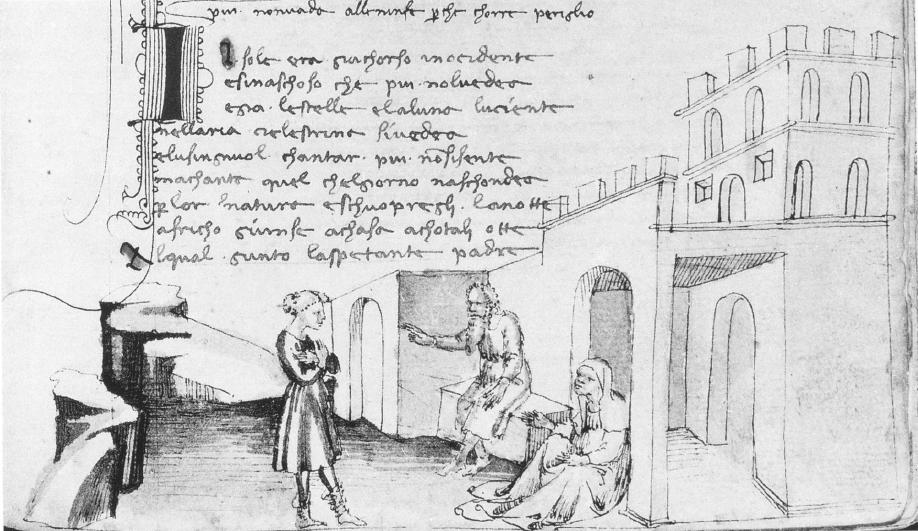 piu · nonvada alleninfe p̱che chorre periglio
Isole era giachorso inocidente
esinaschoso che piu · nolvedea
egia · lestelle elaluna luciente
nellaria cielestrina sivedea
elusingnuol chantar · piu · nōsisente
machanta quel chelgiorno naschondea
p̱ lor natura eschuopregli lanotte
africho giunse achasa achotali otte
lqual giunto laspetante padre